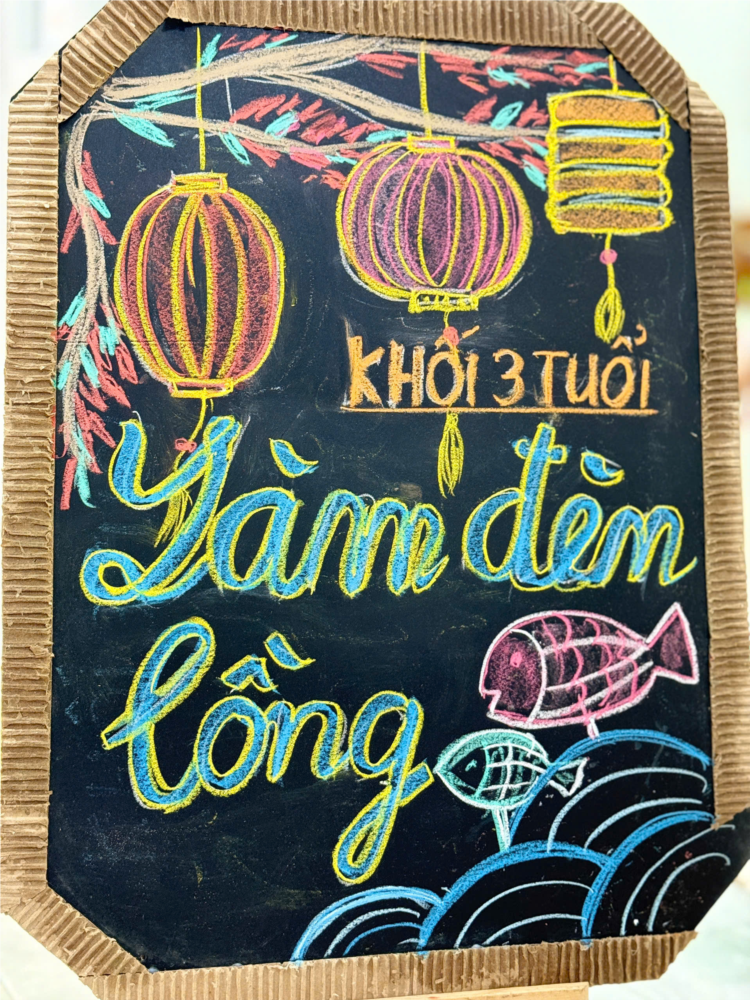 KHỐI 3 TUỔI
Làm đèn
lồng